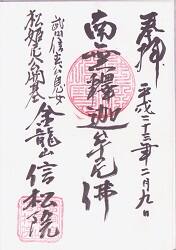 奉拝
平成二十三年二月九日
南無釋迦牟尼佛
武田信玄公息女
松姫さま開基
金龍山信松院